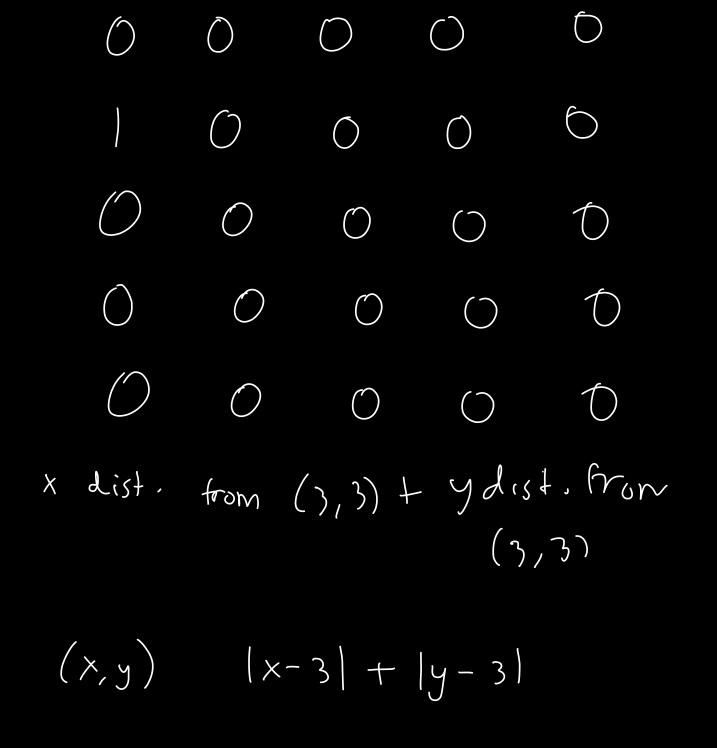 0 0 0 0 0
1 0 0 0 0
0 0 0 0 0
0 0 0 0 0
0 0 0 0 0
x dist. from (3,3) + y dist. from
(3,3)
(x,y) |x-3| + |y-3|